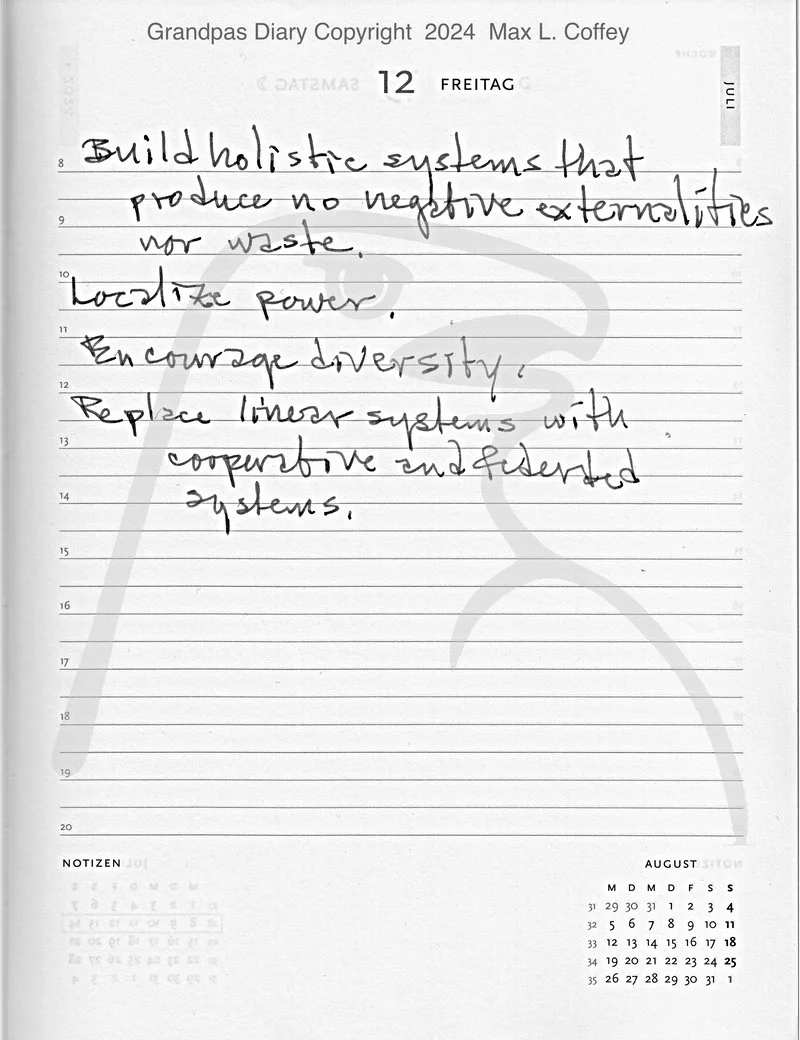 Grandpas Diary Copyright 2024 Max L. Coffey
12 FREITAG
JULI
8 Build holistic systems that
produce no negative externalities
9
nor waste.
10 Localize power.
11
Encourage diversity.
12
Replace linear systems with
13
cooperative and federated
14
systems.
15
16
17
18
19
20
NOTIZEN
AUGUST
M D M D F S S
31 29 30 31 1 2 3 4
32 5 6 7 8 9 10 11
33 12 13 14 15 16 17 18
34 19 20 21 22 23 24 25
35 26 27 28 29 30 31 1